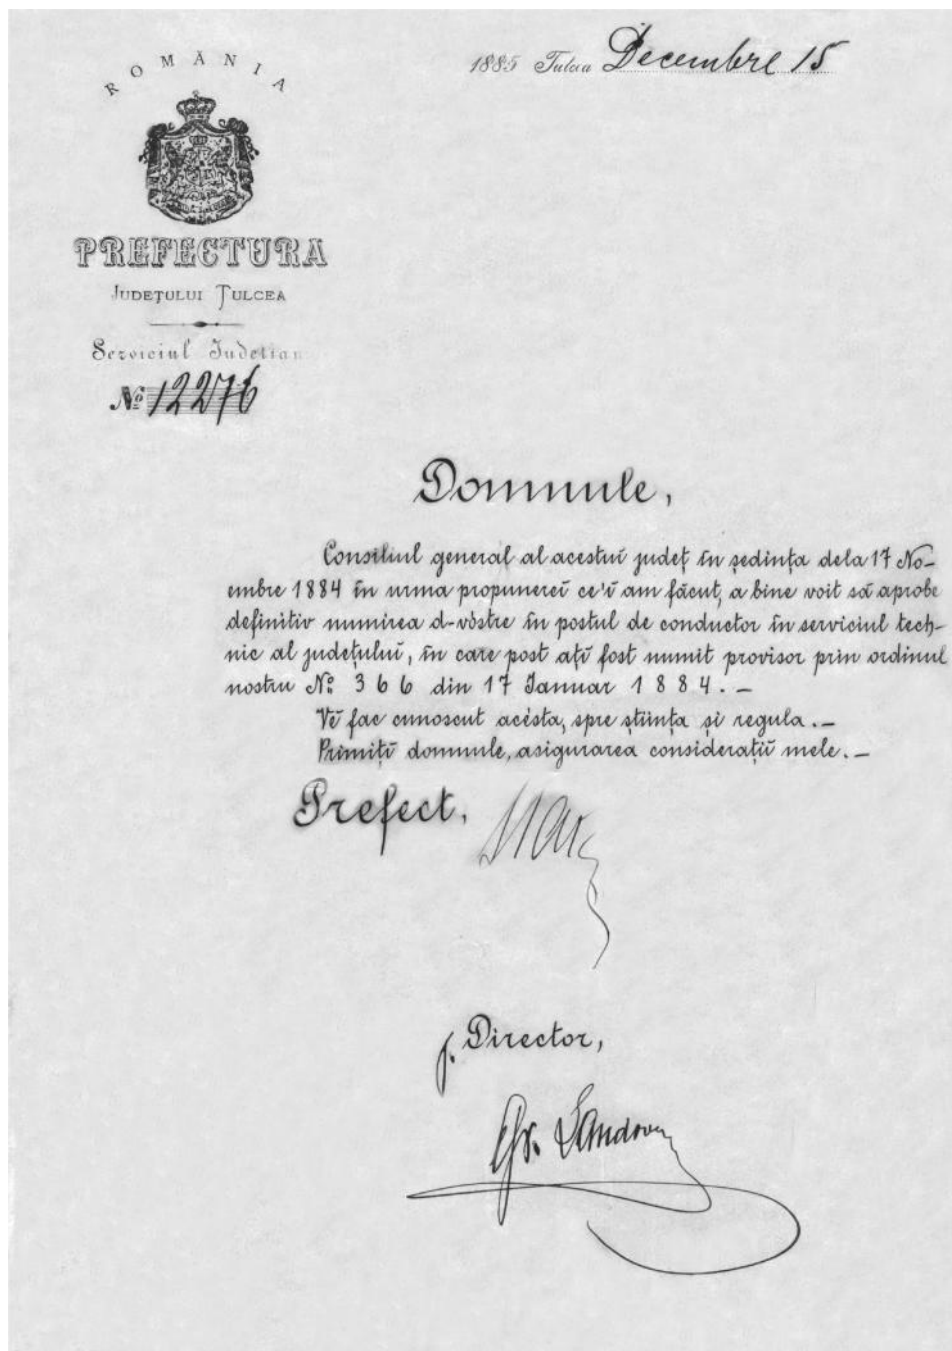 ROMÂNIA
1885 Tulcea Decembre 15
PREFECTURA
JUDEŢULUI TULCEA
Serviciul Judeţian
No 12276
Domnule,
Consiliul general al acestuĭ judeţ în şedinţa dela 17 No-
embre 1884 în urma propunereĭ ce'ĭ am făcut, a bine voit să aprobe
definitiv numirea d-vóstre în postul de conductor în serviciul tech-
nic al judeţuluĭ, în care post aţĭ fost numit provisor prin ordinul
nostru No 366 din 17 Januar 1884. —
Vĕ fac cunoscut acésta, spre ştiinţa şi regula. —
Primiţĭ domnule, asigurarea consideraţiĭ mele. —
Prefect,
p. Director,
Gr.